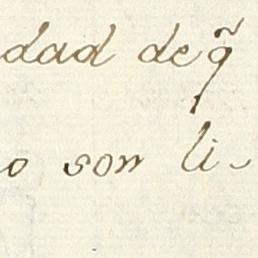 dad de q̃
o son li-